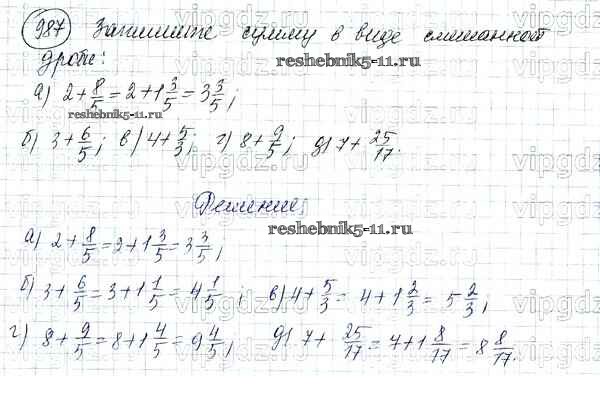 987 Запишите сумму в виде смешанной
дроби:
reshebnik5-11.ru
а) 2 + 8/5 = 2 + 1 3/5 = 3 3/5;
reshebnik5-11.ru
б) 3 + 6/5; в) 4 + 5/3; г) 8 + 9/5; д) 7 + 25/17.
Решение:
reshebnik5-11.ru
а) 2 + 8/5 = 2 + 1 3/5 = 3 3/5;
б) 3 + 6/5 = 3 + 1 1/5 = 4 1/5; в) 4 + 5/3 = 4 + 1 2/3 = 5 2/3;
г) 8 + 9/5 = 8 + 1 4/5 = 9 4/5; д) 7 + 25/17 = 7 + 1 8/17 = 8 8/17.